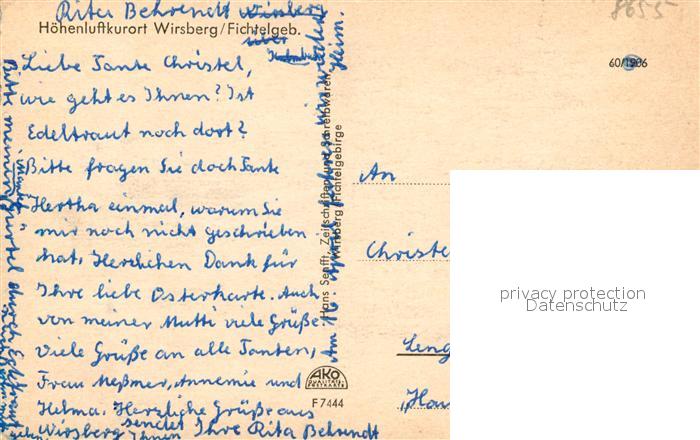 Rita Behrendt Wirsberg
Höhenluftkurort Wirsberg/Fichtelgeb.
über
Liebe Tante Christel,
wie geht es Ihnen? Ist
Edeltraut noch dort?
Bitte fragen Sie doch Tante
Hertha einmal, warum Sie
mir noch nicht geschrieben
hat. Herzlichen Dank für
Ihre liebe Osterkarte. Auch
von meiner Mutti viele Grüße.
Viele Grüße an alle Tanten,
Frau Meßmer, Annemie und
Helma. Herzliche Grüße aus
Wirsberg sendet Ihre Rita Behrendt
Ihnen
Bitte meinen gürtel durch Edeltraut
Mantel
Am 16. April fahren wir wieder
Heim.
Hans Senfft, Zeitschriften und Schreibwaren
Wirsberg/Fichtelgebirge
AKO
QUALITÄTS
POSTKARTE
F 7444
8655
60/1906
An
Christe
Leng
"Hau
privacy protection
Datenschutz